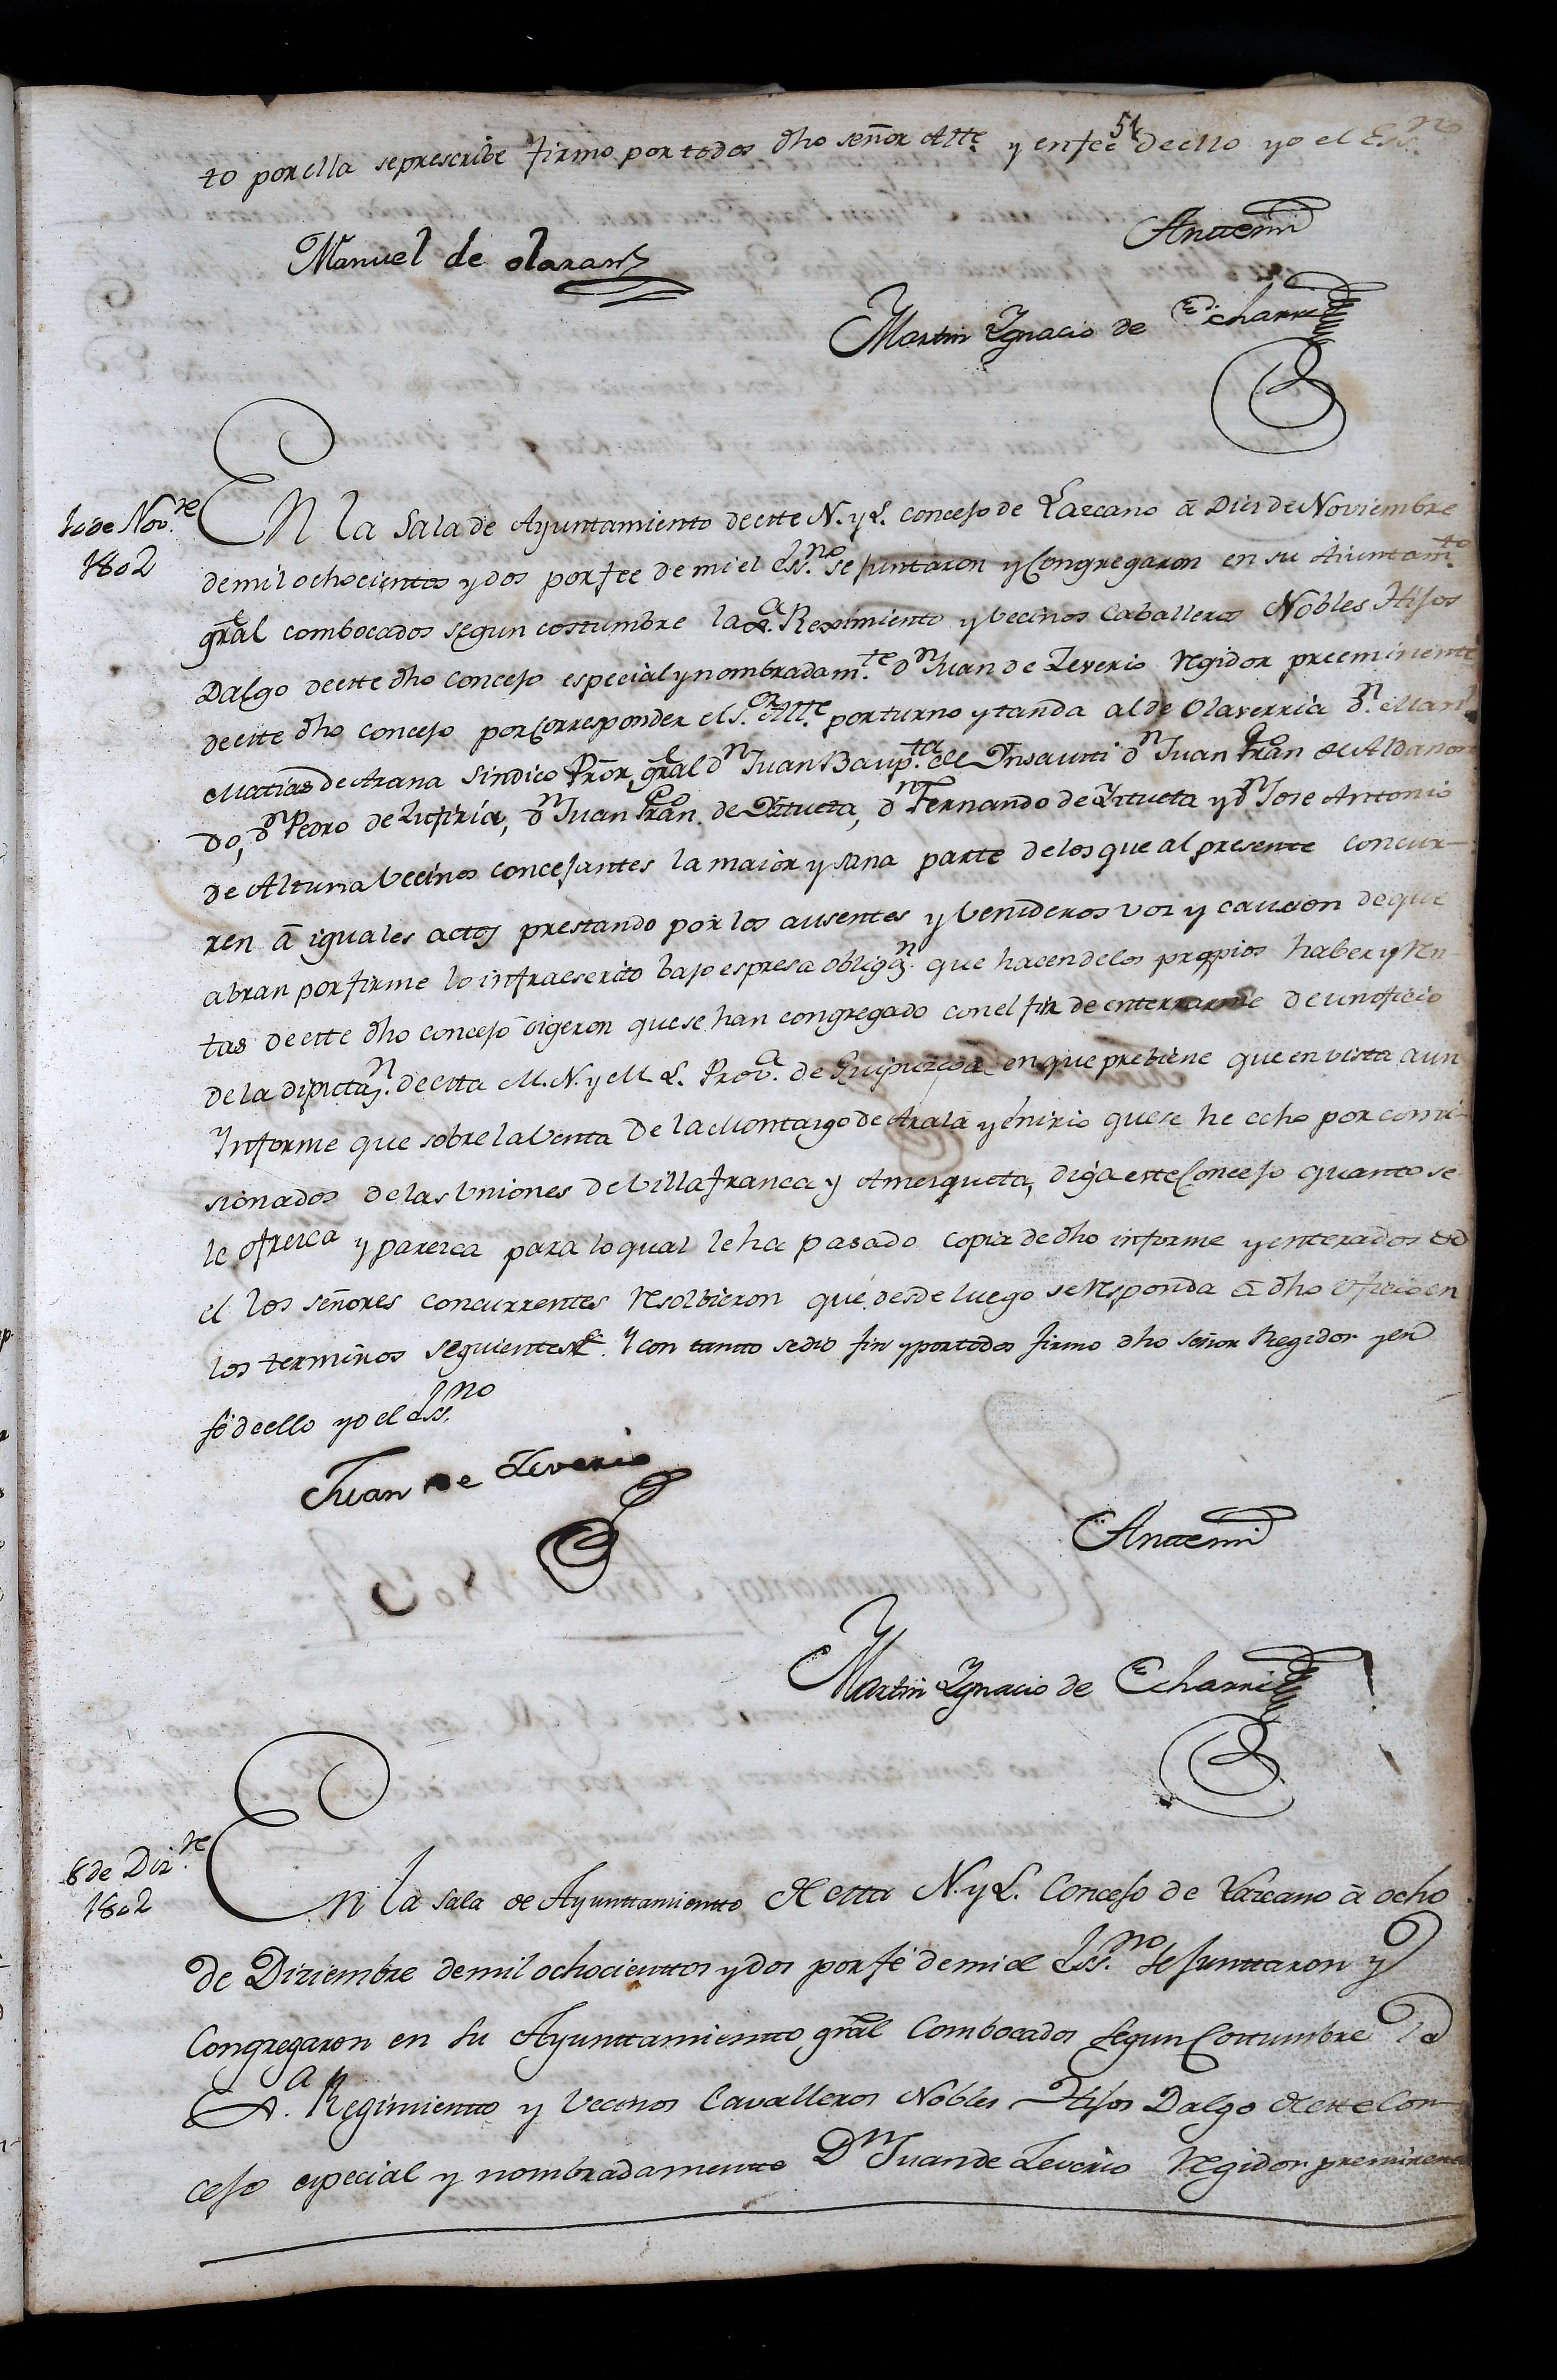 51
to por ella se prescribe firmo por todos dho señor Alle. y en fee de ello yo el Ess.no
Ante mi
Manuel de olaran
Martin Ygnacio de Echarri
10 de Nov.re
1802
En la Sala de Ayuntamiento de este N. y L. concejo de Lazcano â Dies de Noviembre
de mil ochocientos y dos por fee de mi el Ess.no se juntaron y Congregaron en su Aiuntam.to
gral combocados segun costumbre la Regimiento y vecinos Caballeros Nobles Hijos
Dalgo de este dho concejo especial y nombradam.te dn Juan de Zeverio Regidor preeminente
de este dho concejo por Corresponder el S.or Alle. por turno y tanda al de Olaverria dn. Man.l
Matias de Arana Sindico Pror. gral dn Juan Baup.ta de Ynsausti dn Juan Fran.co de Aldanon
do, dn Pedro de Lufiria, dn Juan Fran.co de Ytueta, dn Fernando de Yrtueta y dn Jose Antonio
de Altuna Vecinos concejantes la maior y sana parte de los que al presente concur-
ren â iguales actos prestando por los ausentes y venideros voz y caucion de que
abran por firme lo infraescrito bajo espresa obligaz.n que hacen de los propios haber y Ren-
tas de este dho concejo digeron que se han congregado con el fin de enterrarme de un oficio
de la diputaz.n de esta M. N. y M. L. Prov.a de Guipuzcoa en que prebiene que en vista a un
Informe que sobre la Venta de la Montaigo de Arala y enirio que se he echo por comi-
sionados de las Vniones de Villafranca y Amezqueta, diga este Concejo quanto se
le ofrezca y parezca para lo qual le ha pasado copia de dho informe y enterados de
el los señores concurrentes resolbieron que desde luego se responda â dho oficio en
los terminos seguientes Y con tanto se dio fin y por todos firmo dho señor Regidor y en
fé de ello yo el Ess.no
Juan de Zeverio
Ante mi
Martin Ygnacio de Echarri
8 de Diz.re
1802
En la Sala de Ayunttamientto de esta N. y L. Concejo de Lazcano â ocho
de Diziembre de mil ochocienttos y dos por fé de mi el Ess.no se junttaron y
Congregaron en su Ayunttamientto gral Combocados segun Costtumbre la
Regimientto y Vecinos Cavalleros Nobles Hijos Dalgo de este Con-
cejo especial y nombradamente Dn Juan de Zeverio Regidor preminente